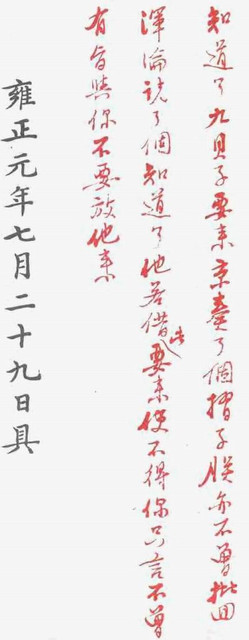 知道了九貝子要来京奏了個摺子朕亦不曾批回
渾淪說了個知道了他若借此要来使不得你只言不曾
有旨與你不要放他来
雍正元年七月二十九日具